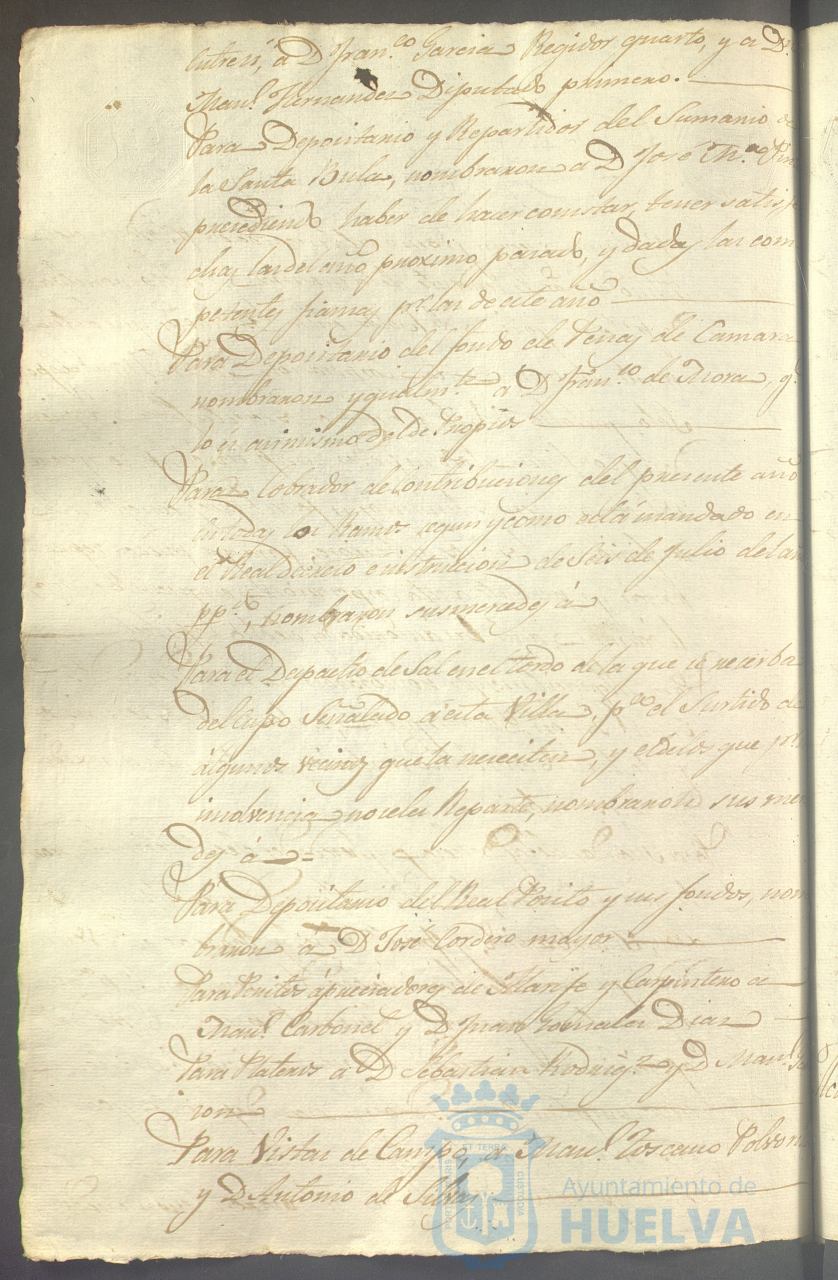 a D.n Fran.co Garcia Regidor quarto, y a D.n
Man.l Hernandez Diputado primero.
Para Depositario y Repartidor del Sumario de
la Santa Bula, nombraron a D. José M.a
precediendo haber de hacer constar, tener satisfe
chas las del año proximo pasado, y dadas las com
petentes fianzas p.r las de este año
Para Depositario del fondo de Penas de Camara
nombraron ygualm.te a D. Fran.co de Mora, q.e
lo es asimismo del de Propios
Para Cobrador de Contribuciones del presente año
de todos los Ramos segun y como está mandado en
el Real Decreto e instrucion de Seis de Julio del año
pp.do, nombraron sus mercedes á
Para el Despacho de Sal en el tordo de la que se reserba
del Cupo Señalado á esta Villa, p.a el Surtido de
algunos vecinos que la nececiten, y de los que p.r
insolvencia no se les Reparte, nombraron sus mer
des á =
Para Depositario del Real Posito y sus fondos, nom
braron á D. José Cordero mayor
Para Peritos apreciadores de Alarife y Carpintero a
Man.l Carbonel y D. Juan Gonzalez Diaz
Para Plateros a D. Sebastian Rodrig.z y D. Man.l
ron
Para Vistas de Campo, a Man.l Toscano
y D. Antonio de Silva
Ayuntamiento de
HUELVA